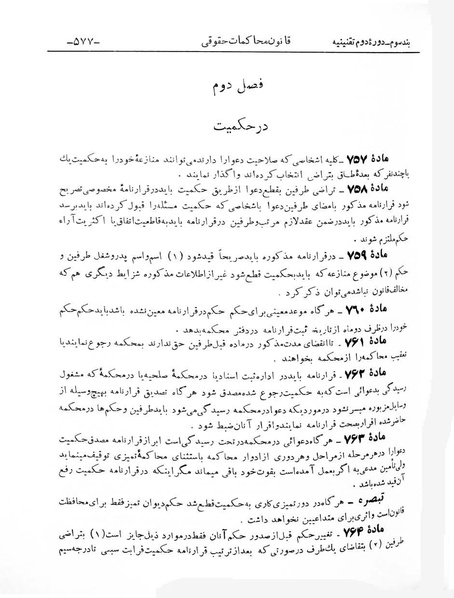 بند سوم ـ دورهٔ دوم تقنینیه قانون محاکمات حقوقی ـ۵۷۷ـ
فصل دوم
در حکمیت
مادهٔ ۷۵۷ ـ کلیه اشخاصی که صلاحیت دعوا را دارند می‌توانند منازعهٔ خود را به حکمیت یك
یا چند نفر که بعدهٔ طاق بتراضی انتخاب کرده‌اند واگذار نمایند .
مادهٔ ۷۵۸ ـ تراضی طرفین بقطع دعوا از طریق حکمیت باید در قرارنامهٔ مخصوصی تصریح
شود قرارنامه مذکور بامضای طرفین دعوا با شخاصی که حکمیت مسئله را قبول کرده‌اند باید برسد
قرارنامه مذکور باید در ضمن عقد لازم مرتب و طرفین در قرارنامه باید به قاطعیت اتفاق یا اکثریت آراء
حکم ملتزم شوند .
مادهٔ ۷۵۹ ـ در قرارنامه مذکوره باید صریحاً قید شود (۱) اسم و اسم پدر و شغل طرفین و
حکم (۲) موضوع منازعه که باید بحکمیت قطع شود غیر از اطلاعات مذکوره شرایط دیگری هم که
مخالف قانون نباشد می‌توان ذکر کرد .
مادهٔ ۷۶۰ ـ هر گاه موعد معینی برای حکم حکم در قرارنامه معین نشده باشد باید حکم حکم
خود را در ظرف دو ماه از تاریخ ثبت قرارنامه در دفتر محکمه بدهد .
مادهٔ ۷۶۱ ـ تا انقضای مدت مذکور در ماده قبل طرفین حق ندارند به محکمه رجوع نمایند یا
تعقیب محاکمه را از محکمه بخواهند .
مادهٔ ۷۶۲ ـ قرارنامه باید در اداره ثبت اسناد یا در محکمهٔ صلحیه یا در محکمهٔ که مشغول
رسیدگی بدعوائی است که به حکمیت رجوع شده مصدق شود هر گاه تصدیق قرارنامه بهیچ وسیله از
وسایل مزبوره میسر نشود در موردیکه دعوا در محکمه رسیدگی می‌شود باید طرفین و حکم‌ها در محکمه
حاضر شده اقرار بصحت قرارنامه نمایند و اقرار آنان ضبط شود .
مادهٔ ۷۶۳ ـ هر گاه دعوائی در محکمه در تحت رسیدگی است ابراز قرارنامه مصدق حکمیت
دعوا را در هر مرحله از مراحل و هر دوری از ادوار محاکمه باستثنای محاکمهٔ تمیزی توقیف مینماید
ولی تأمین مدعی به اگر بعمل آمده است بقوت خود باقی میماند مگر اینکه در قرارنامه حکمیت رفع
آن قید شده باشد .
تبصره ـ هر گاه در دور تمیزی کاری به حکمیت قطع شد حکم دیوان تمیز فقط برای محافظت
قانون است و اثری برای متداعیین نخواهد داشت .
مادهٔ ۷۶۴ ـ تغییر حکم قبل از صدور حکم آنان فقط در موارد ذیل جایز است (۱) بتراضی
طرفین (۲) بتقاضای یك طرف در صورتی که بعد از ترتیب قرارنامه حکمیت قرابت سببی تا درجه سیم